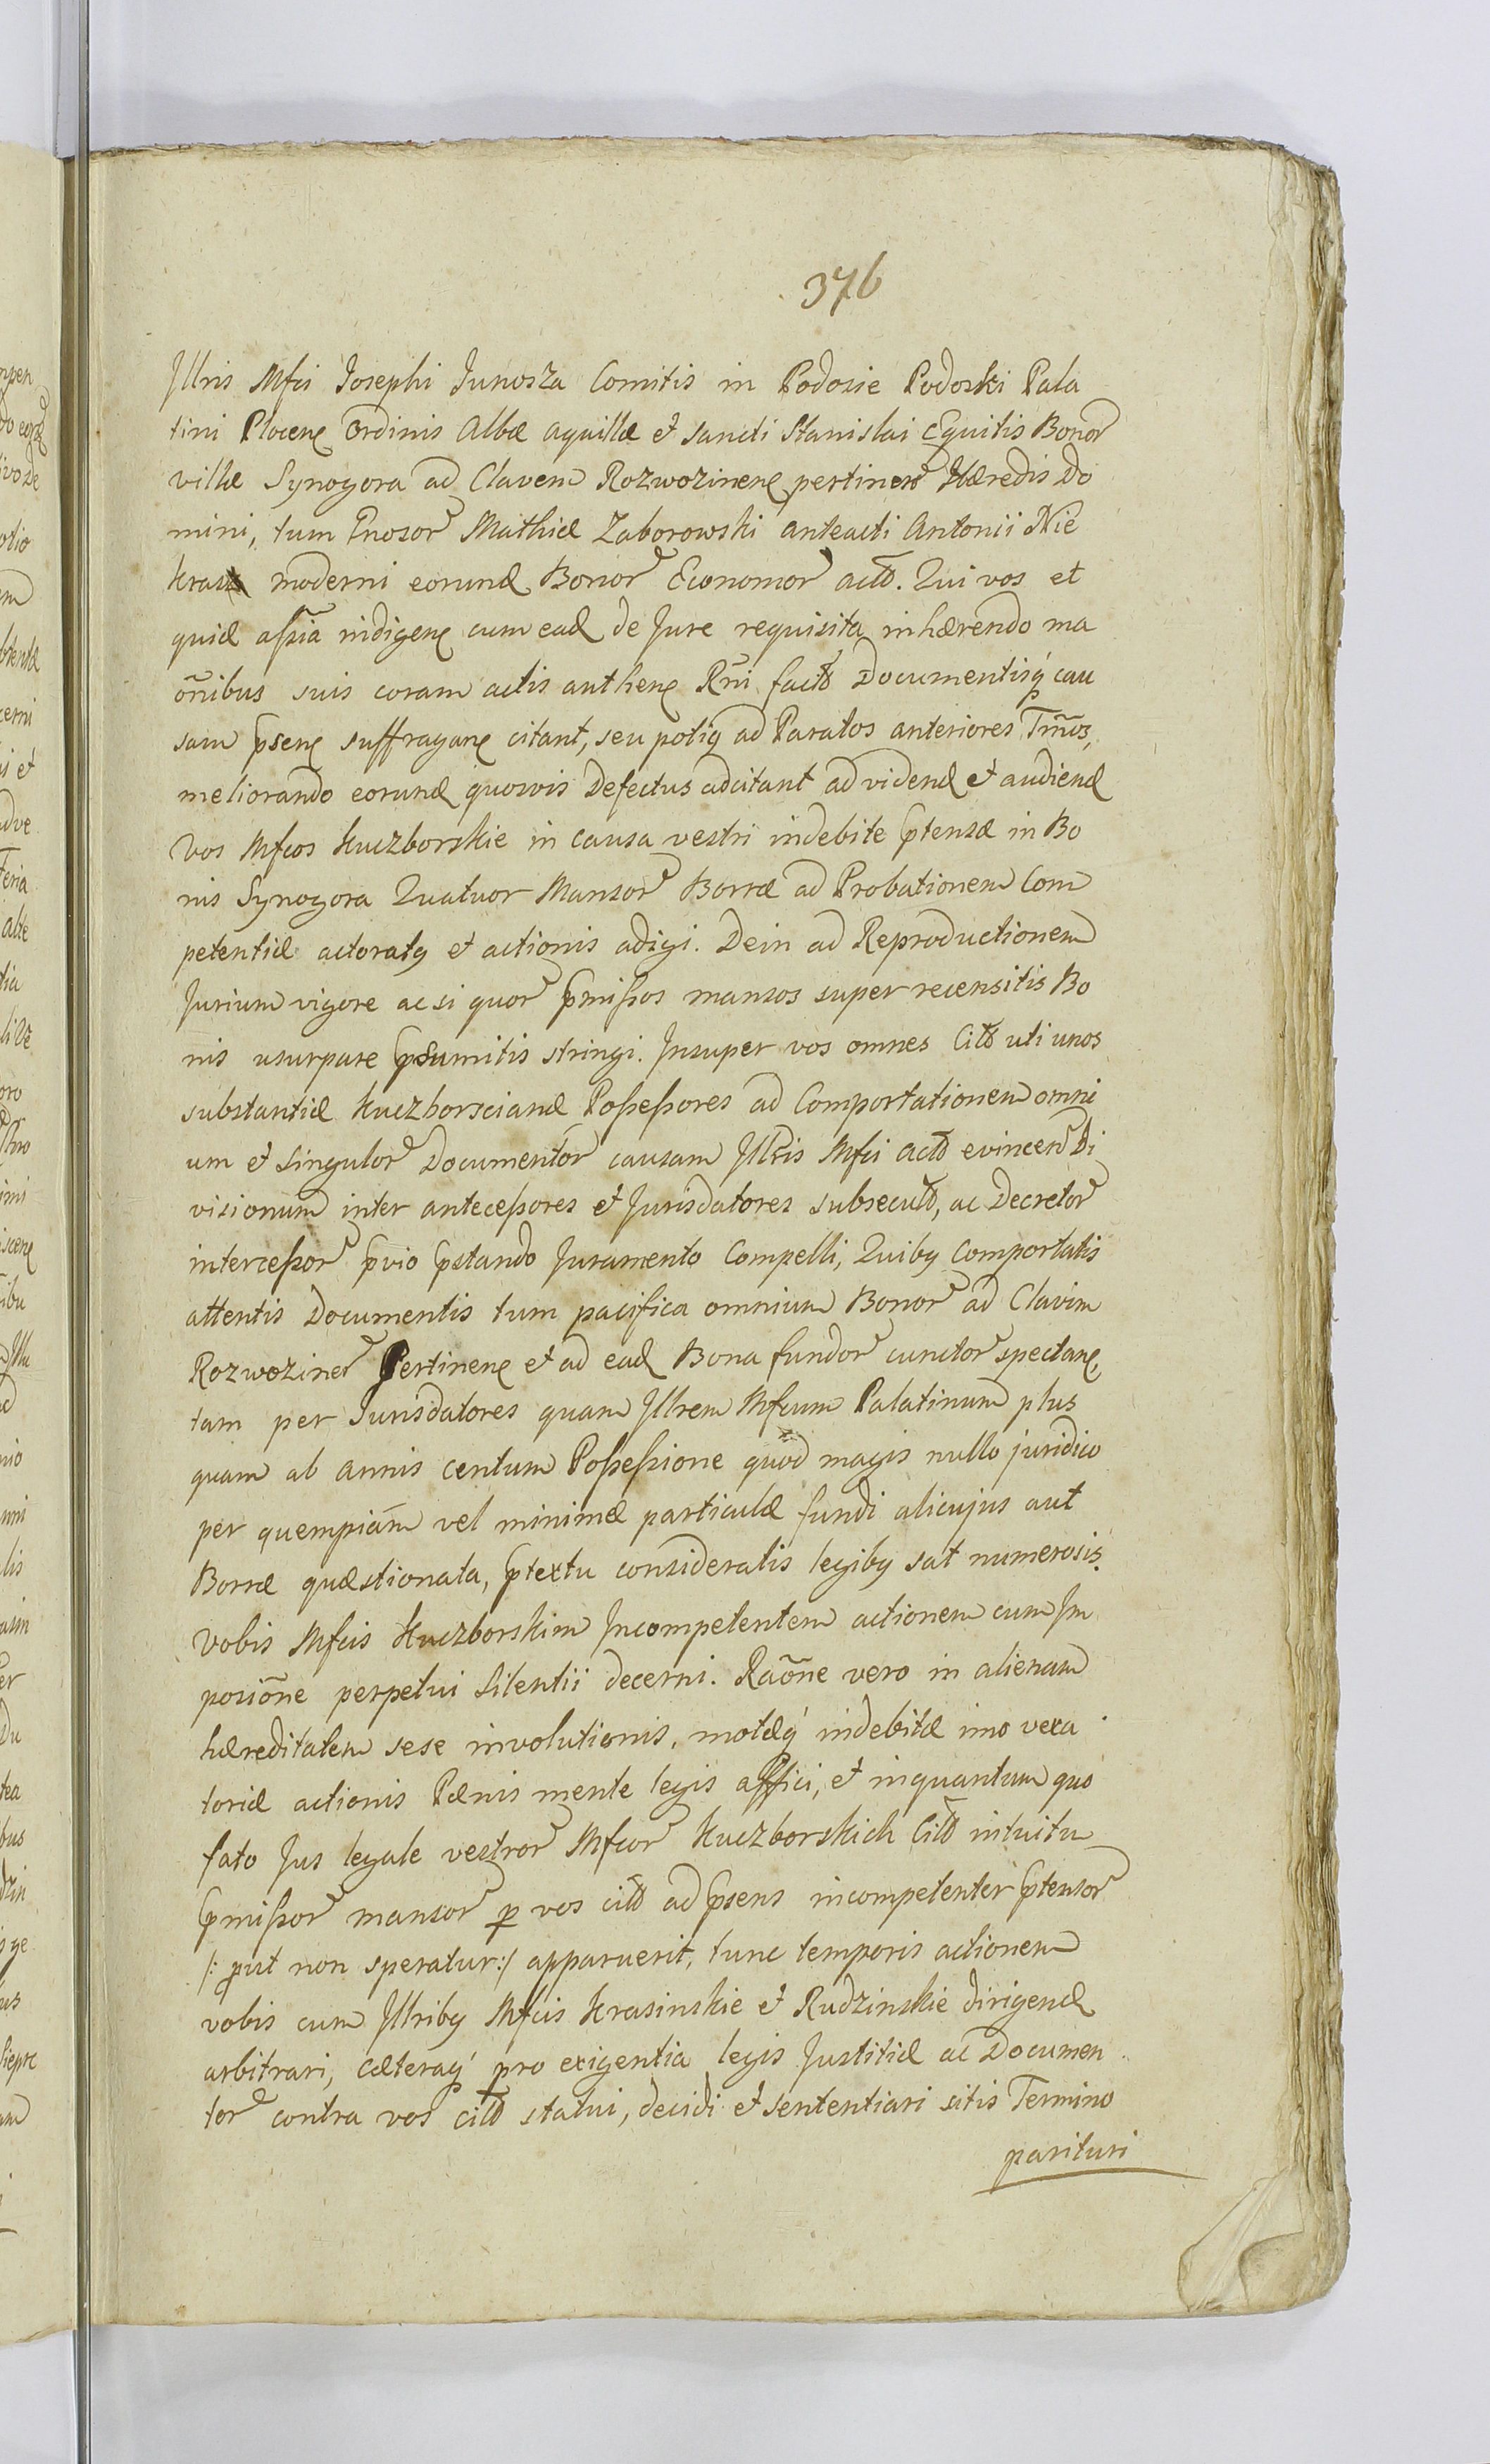 376
Jllris Mfci Josephi Junosza Comitis in Podosie Podoski Pala
tini Plocenς Ordinis Albæ Aquillæ et Sancti Stanislai Equitis Bonor
villæ Synogora ad Clavem Rozwozinenς pertinen Hæredis Do
mini, tum Gnosor Mathiæ Zaborowski anteacti Antonii Nie
krasz moderni eorund Bonor Economor acto. Qui vos et
quid aßia indigenς cum ead de Jure requisita inhærendo ma
õnibus suis coram actis authenς Rñi facto Documentisq́ cau
sam psenς suffraganς citant, seu potiꝯ ad Paratos anteriores Tm̃os,
meliorando eorund quosvis Defectus adcitant ad videnđ et audienđ
Vos Mfcos Kuczborskie in causa vestri indebite ptensæ in Bo
nis Synogora Quatuor Mansor Borræ ad Probationem Com
petentiæ actoratꝯ et actionis adigi. Dein ad Reproductionem
Jurium vigore ac si quor pmißos mansos super recensitis Bo
nis usurpare psumitis stringi. Jnsuper vos omnes Cito uti unos
substantiæ Kuczborscianæ Poßeßores ad Comportationem omni
um et Singulor Documentor causam Jllris Mfci acto evincen Di
visionum inter anteceßores et Jurisdatores subsecuto, ac Decretor
interceßor pvio pstando Juramento Compelli, Quibꝯ Comportatis
attentis Documentis tum pacifica omnium Bonor ad Clavim
Rozwoziner Pertinenς et ad ead Bona fundor cunctor spectanς,
tam per Jurisdatores quam Jllrem Mfcum Palatinum plus
quam ab annis centum Poßeßione quod magis nullo juridico
per quempiam vel minimæ particulæ fundi alicujus aut
Borræ quæstionata, ptextu consideratis legibꝯ sat numerosis.
Vobis Mfcis Kuczborskim Jncompetentem actionem cum Jm
posiõne perpetui Silentii decerni. Raõne vero in alienam
hæreditatem sese involutionis, motæq́ indebitæ imo vexa
toriæ actionis Pænis mente legis affici, et inquantum quo
fato Jus legale vestror Mfcor Kuczborskich Cito intuitu
pmißor mansor p vos cito ad psens incompetenter ptensor
/: put non speratur:/ apparuerit, tunc temporis actionem
vobis cum Jllribꝯ Mfcis Krasinskie et Rudzinskie dirigend
arbitrari, cæteraq́ pro exigentia legis Justitiæ ac Documen
tor contra vos cito statui, decidi et sententiari sitis Termino
parituri